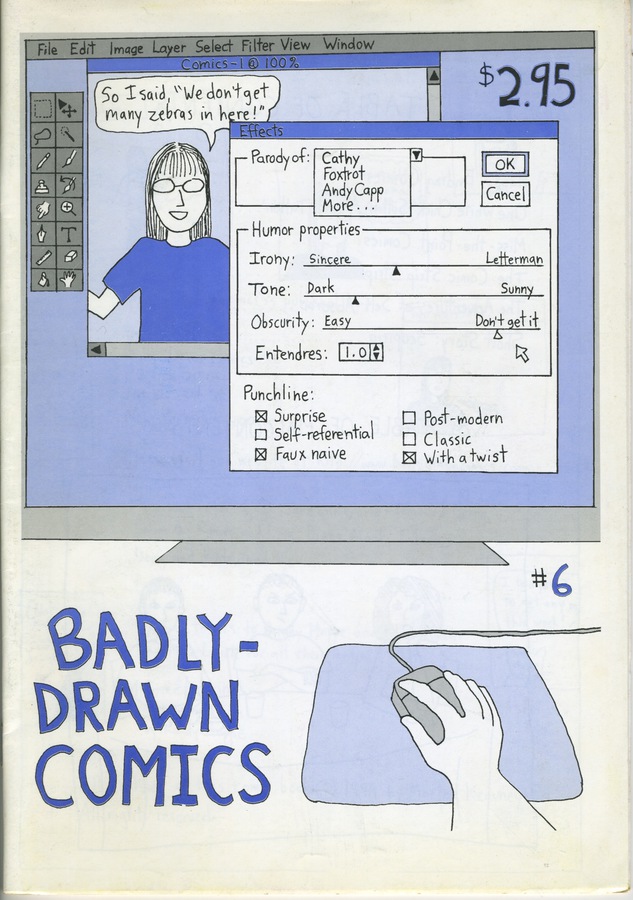 File Edit Image Layer Select Filter View Window
Comics-1 @ 100%
$2.95
So I said, "We don't get
many zebras in here!"
Effects
Parody of:
Cathy
Foxtrot
Andy Capp
More...
OK
Cancel
Humor properties
Irony: Sincere Letterman
Tone: Dark Sunny
Obscurity: Easy Don't get it
Entendres: 1.0
Punchline:
Surprise
Self-referential
Faux naive
Post-modern
Classic
With a twist
T
#6
BADLY-
DRAWN
COMICS